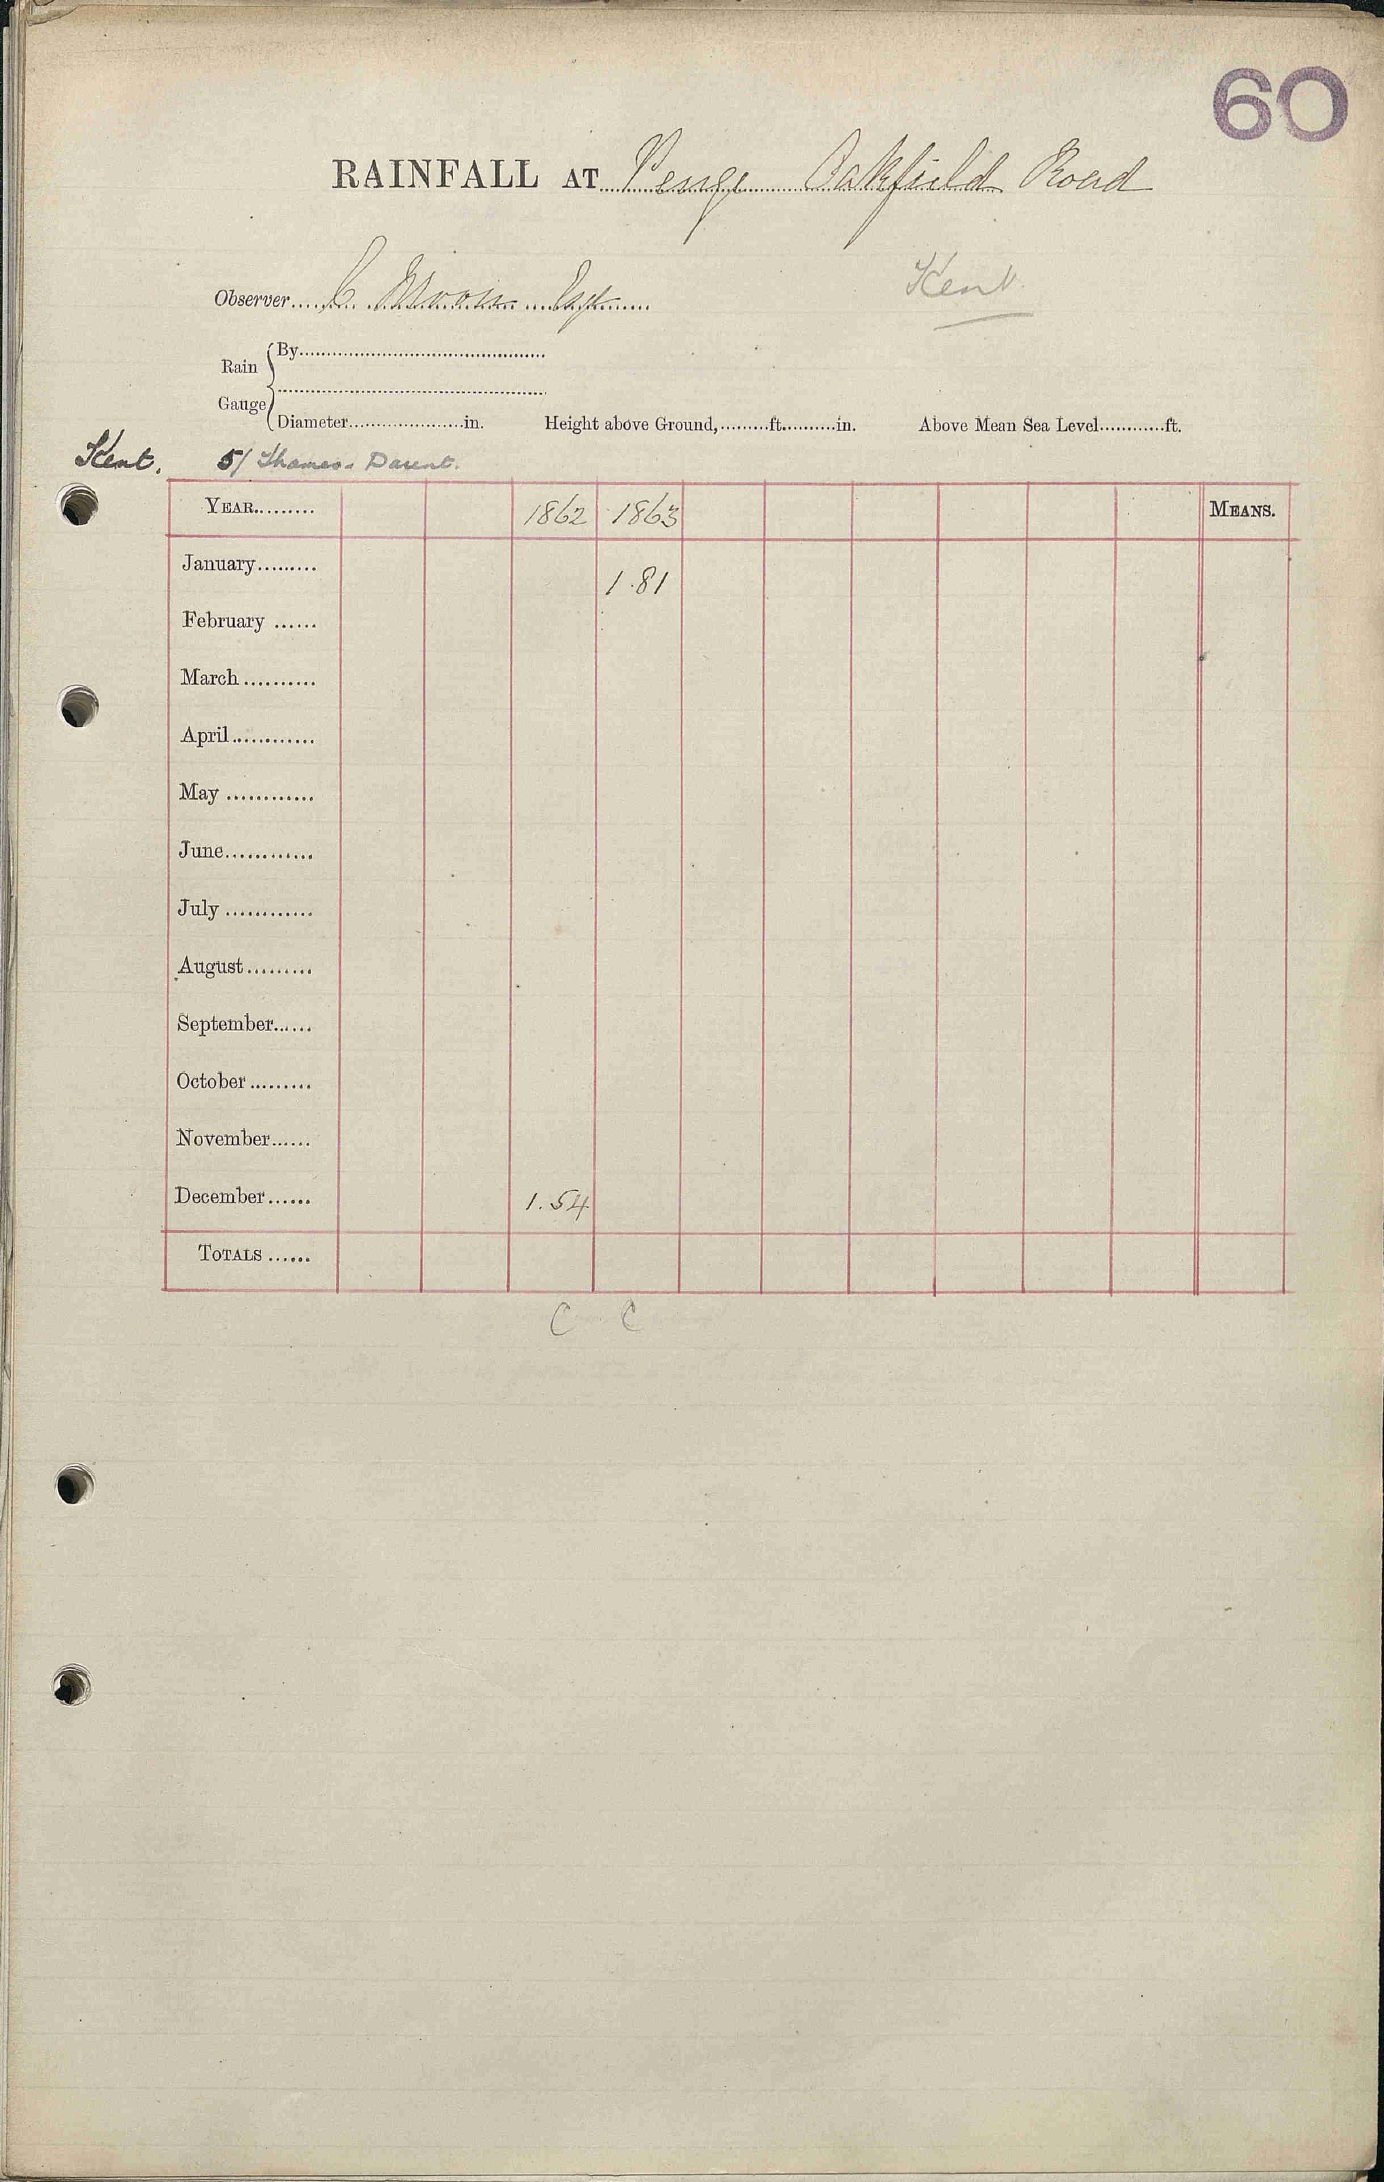 60
RAINFALL AT Penge Oakfield Road
Observer.... C. Moon Esqr ......
Kent
Rain Gauge { By..............................
..............................
Diameter.....................in. Height above Ground,.........ft..........in. Above Mean Sea Level............ft.
Kent. 5/ Thames - Darent.
YEAR......... 1862 1863 MEANS.
January......... 1.81
February ......
March..........
April............
May ............
June............
July ............
August.........
September......
October.........
November......
December...... 1.54
TOTALS ......
C C